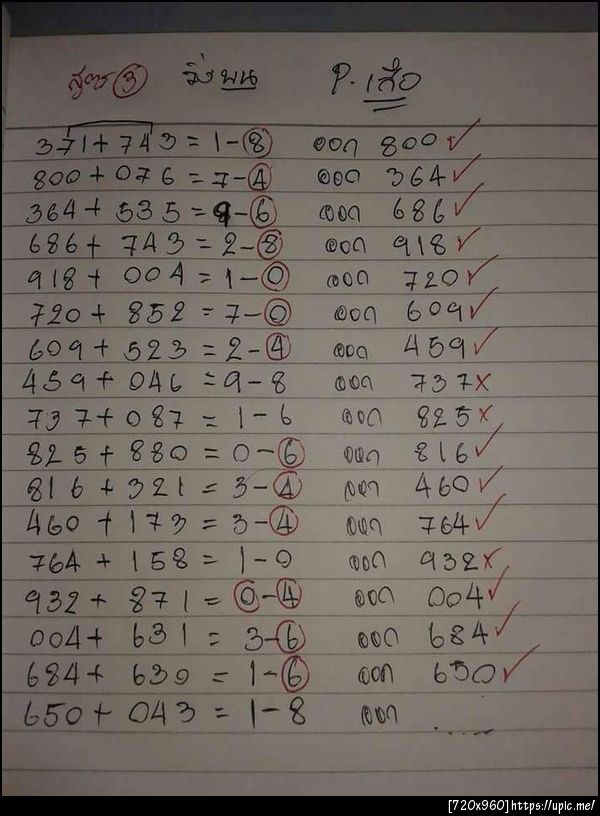 สูตร ③ วิ่งบน P. เสือ
371 + 743 = 1 - 8 ออก 800 ✓
800 + 076 = 7 - 4 ออก 364 ✓
364 + 535 = 9 - 6 ออก 686 ✓
686 + 743 = 2 - 8 ออก 918 ✓
918 + 004 = 1 - 0 ออก 720 ✓
720 + 852 = 7 - 0 ออก 609 ✓
609 + 523 = 2 - 4 ออก 459 ✓
459 + 046 = 9 - 8 ออก 737 ✗
737 + 087 = 1 - 6 ออก 825 ✗
825 + 880 = 0 - 6 ออก 816 ✓
816 + 321 = 3 - 4 ออก 460 ✓
460 + 173 = 3 - 4 ออก 764 ✓
764 + 158 = 1 - 0 ออก 932 ✗
932 + 871 = 0 - 4 ออก 004 ✓
004 + 631 = 3 - 6 ออก 684 ✓
684 + 630 = 1 - 6 ออก 650 ✓
650 + 043 = 1 - 8 ออก .....
[720x960]https://upic.me/